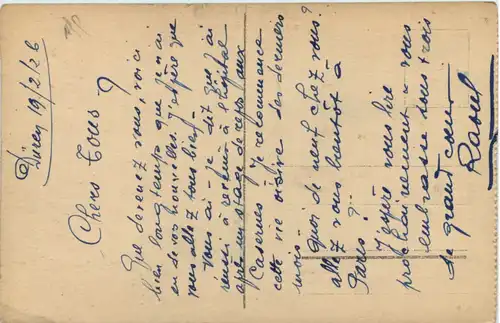 Düren 19/2/26
Chers Tous !
Que devenez vous, voici
bien longtemps que je n'ai
eu de vos nouvelles. J'espère que
vous allez tous bien.
Vous ai-je dit que j'ai
réussi à revenir à l'hôpital
après un stage de ceux aux
Casernes. Je recommence
cette vie oisive des derniers
mois.
Quoi de neuf chez vous ?
allez vous bientôt à
Paris ?
J'espère vous lire
prochainement & vous
embrasse tous trois
de grand cœur
Raoul